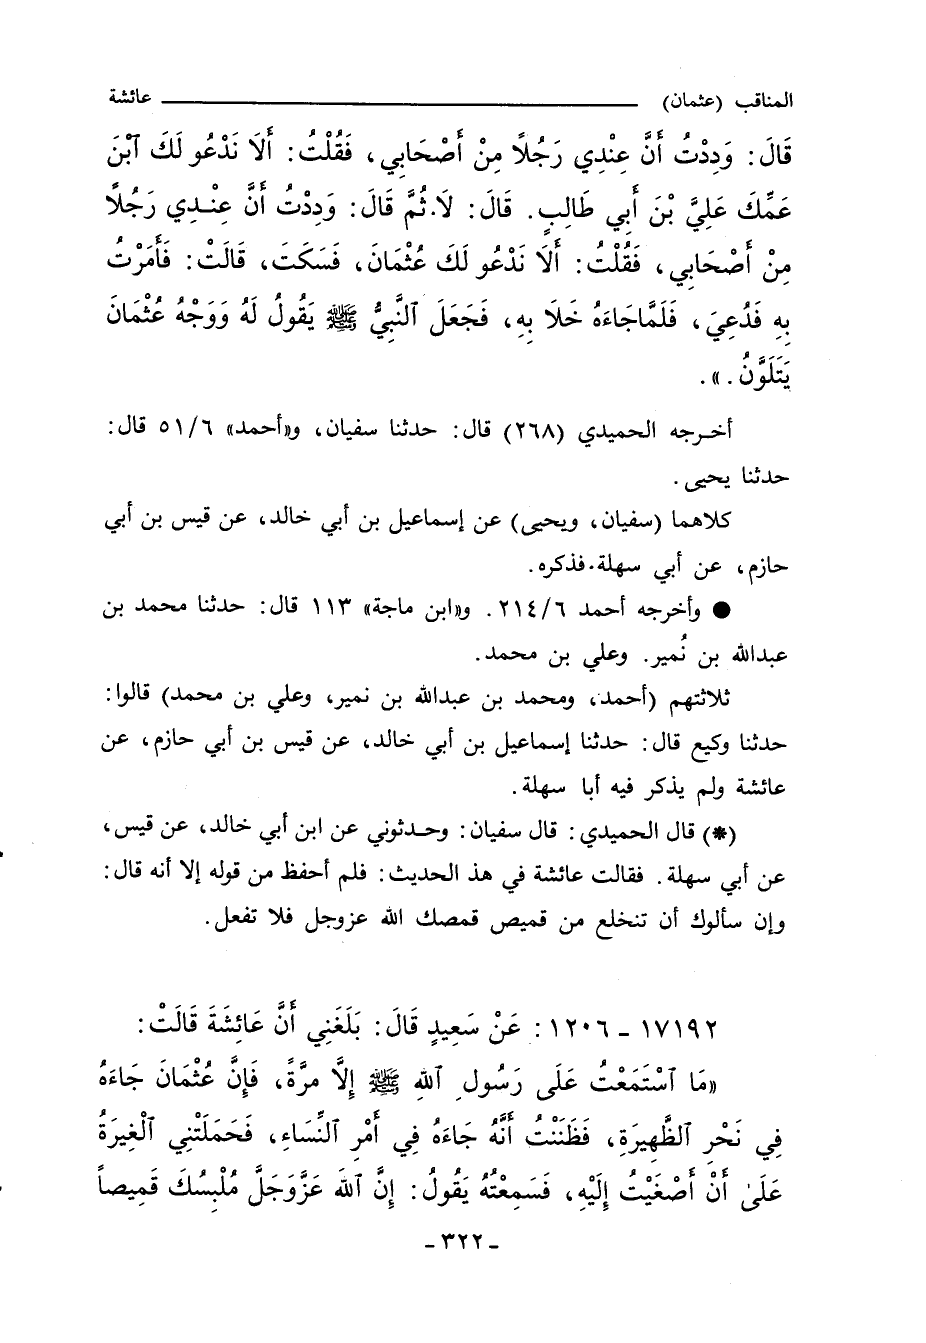 المناقب (عثمان) ــــــــــــــــــــ عائشة
قَالَ: وَدِدْتُ أَنَّ عِنْدِي رَجُلاً مِنْ أَصْحَابِي، فَقُلْتُ: أَلَا نَدْعُو لَكَ ٱبْنَ
عَمِّكَ عَلِيَّ بْنَ أَبِي طَالِبٍ. قَالَ: لَا. ثُمَّ قَالَ: وَدِدْتُ أَنَّ عِنْدِي رَجُلاً
مِنْ أَصْحَابِي، فَقُلْتُ: أَلَا نَدْعُو لَكَ عُثْمَانَ، فَسَكَتَ، قَالَتْ: فَأَمَرْتُ
بِهِ فَدُعِيَ، فَلَمَّاجَاءَهُ خَلَا بِهِ، فَجَعَلَ ٱلنَّبِيُّ ﷺ يَقُولُ لَهُ وَوَجْهُ عُثْمَانَ
يَتَلَوَّنُ.».
أخرجه الحميدي (٢٦٨) قال: حدثنا سفيان، و«أحمد» ٥١/٦ قال:
حدثنا يحيى.
كلاهما (سفيان، ويحيى) عن إسماعيل بن أبي خالد، عن قيس بن أبي
حازم، عن أبي سهلة. فذكره.
● وأخرجه أحمد ٢١٤/٦. و«ابن ماجة» ١١٣ قال: حدثنا محمد بن
عبدالله بن نُمير. وعلي بن محمد.
ثلاثتهم (أحمد، ومحمد بن عبدالله بن نمير، وعلي بن محمد) قالوا:
حدثنا وكيع قال: حدثنا إسماعيل بن أبي خالد، عن قيس بن أبي حازم، عن
عائشة ولم يذكر فيه أبا سهلة.
(*) قال الحميدي: قال سفيان: وحدثوني عن ابن أبي خالد، عن قيس،
عن أبي سهلة. فقالت عائشة في هذ الحديث: فلم أحفظ من قوله إلا أنه قال:
وإن سألوك أن تنخلع من قميص قمصك الله عزوجل فلا تفعل.
١٧١٩٢ ـ ١٢٠٦: عَنْ سَعِيدٍ قَالَ: بَلَغَنِي أَنَّ عَائِشَةَ قَالَتْ:
«مَا ٱسْتَمَعْتُ عَلَى رَسُولِ ٱللهِ ﷺ إِلَّا مَرَّةً، فَإِنَّ عُثْمَانَ جَاءَهُ
فِي نَحْرِ ٱلظَّهِيرَةِ، فَظَنَنْتُ أَنَّهُ جَاءَهُ فِي أَمْرِ ٱلنِّسَاءِ، فَحَمَلَتْنِي ٱلْغِيرَةُ
عَلَىٰ أَنْ أَصْغَيْتُ إِلَيْهِ، فَسَمِعْتُهُ يَقُولُ: إِنَّ ٱللهَ عَزَّوَجَلَّ مُلْبِسُكَ قَمِيصاً
ـ ٣٢٢ ـ